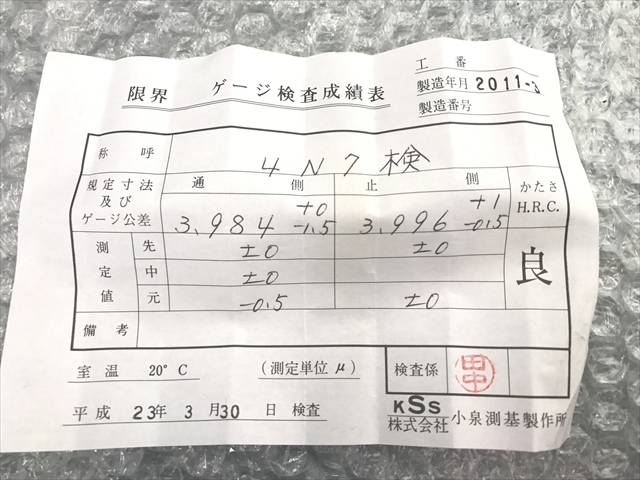 工番
限界 ゲージ検査成績表
製造年月 2011-3
製造番号
称呼 4N7検
規定寸法及びゲージ公差 通側 3.984 +0 -1.5 止側 3.996 +1 -0.5 かたさ H.R.C.
測定値 先 ±0 ±0 良
中 ±0
元 -0.5 ±0
備考
室温 20°C (測定単位μ) 検査係 田中
平成 23年 3月30日 検査
KSS
株式会社 小泉測基製作所